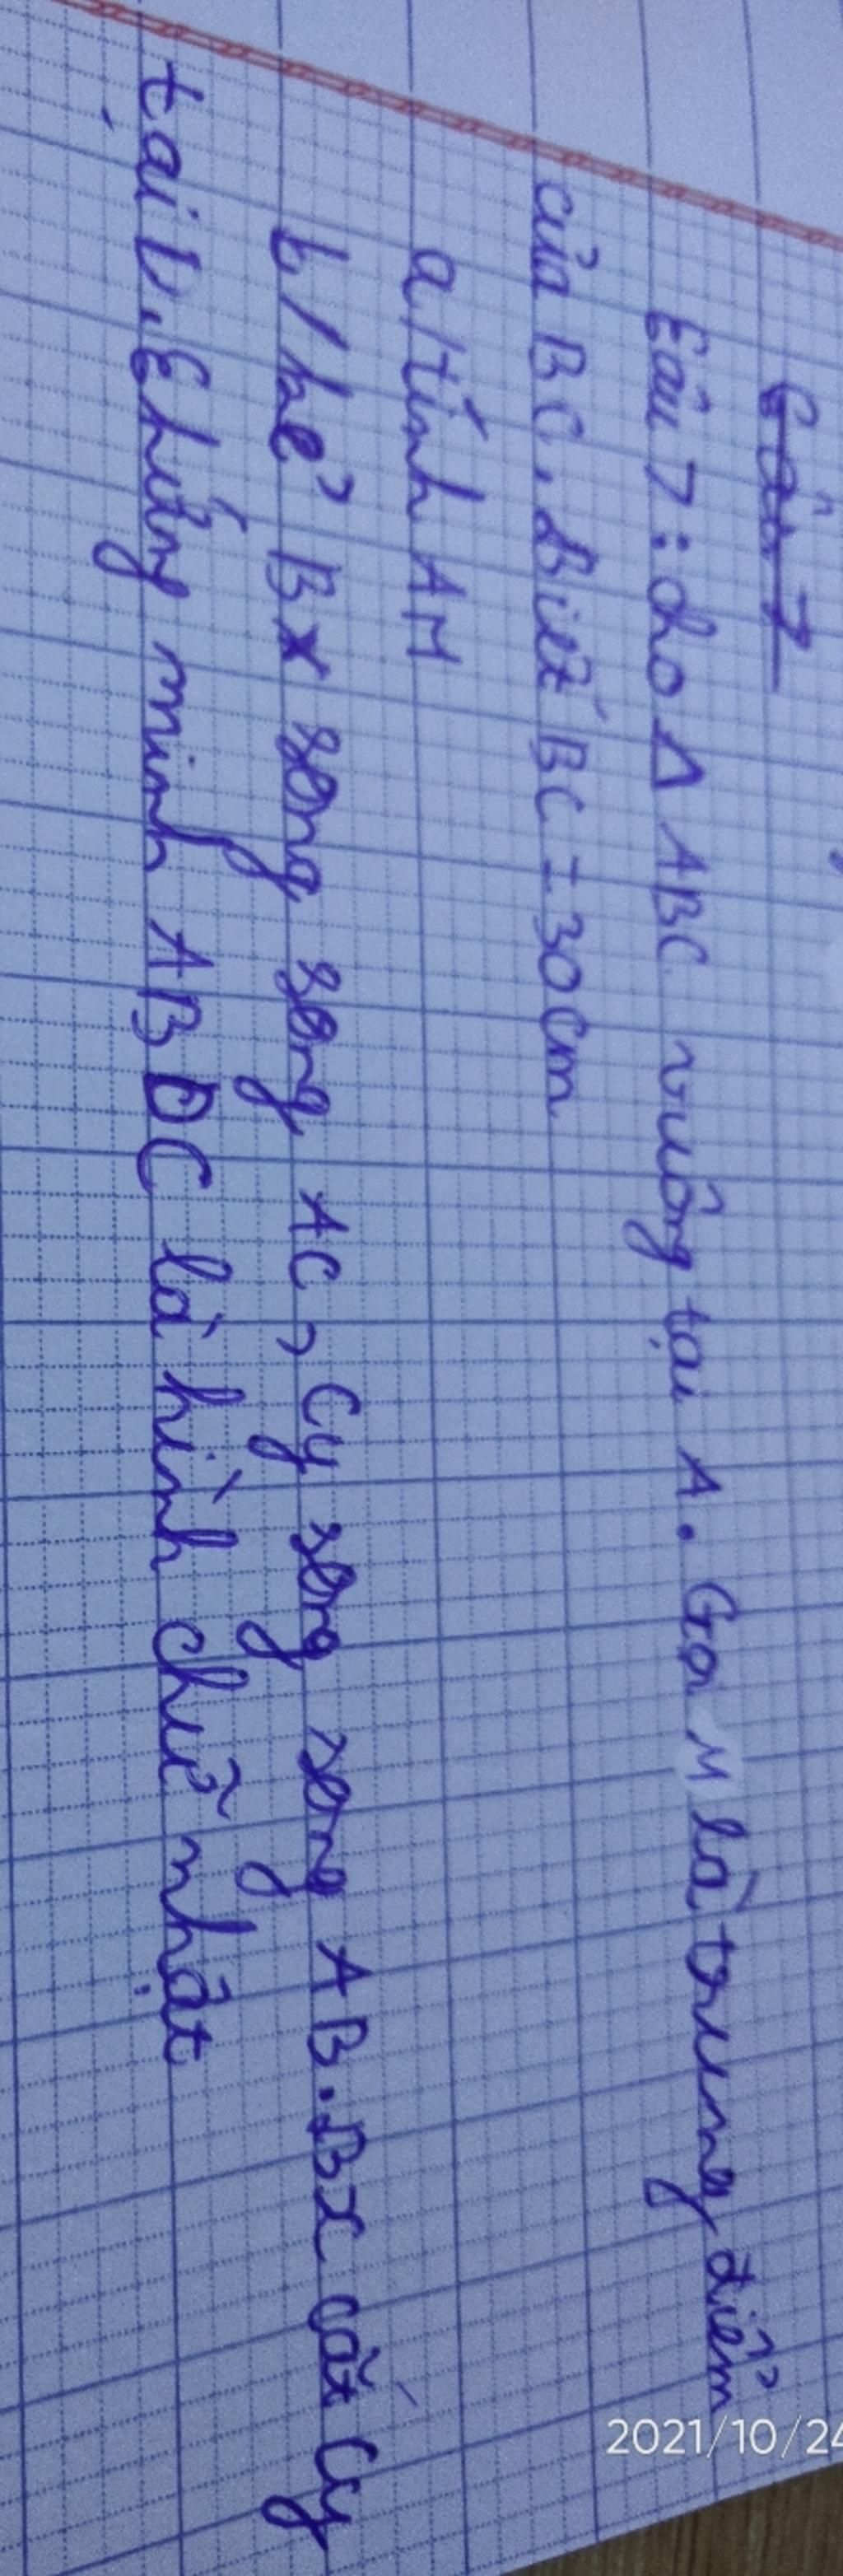 Câu 7
Câu 7: cho Δ ABC vuông tại A. Gọi M là trung điểm
của BC. Biết BC = 30 cm
a/ Tính AM
b/ kẻ Bx song song AC, Cy song song AB. Bx cắt Cy
tại D. Chứng minh ABDC là hình chữ nhật
2021/10/24